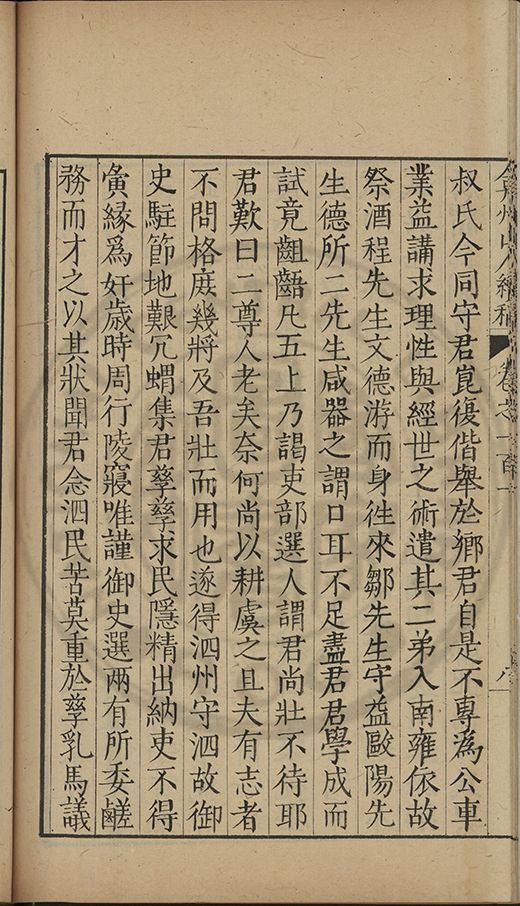 弇州山人續稿 卷之一百十 八
叔氏今同守君崑復偕舉於鄉君自是不專為公車
業益講求理性與經世之術遣其二弟入南雍依故
祭酒程先生文德游而身往來鄒先生守益歐陽先
生德所二先生咸器之謂口耳不足盡君君學成而
試竟齟齬凡五上乃謁吏部選人謂君尚壯不待耶
君歎曰二尊人老矣奈何尚以耕虞之且夫有志者
不問格庻幾將及吾壯而用也遂得泗州守泗故御
史駐節地艱冗蝟集君孳孳求民隱精出納吏不得
夤緣為奸歲時周行陵寢唯謹御史選兩有所委鹺
務而才之以其狀聞君念泗民苦莫重於孳乳馬議